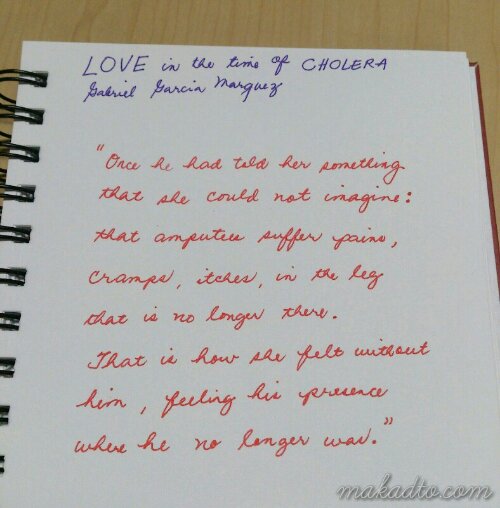 LOVE in the time of CHOLERA
Gabriel Garcia Marquez
"Once he had told her something
that she could not imagine:
that amputees suffer pains,
cramps, itches, in the leg
that is no longer there.
That is how she felt without
him, feeling his presence
where he no longer was."
makadto.com